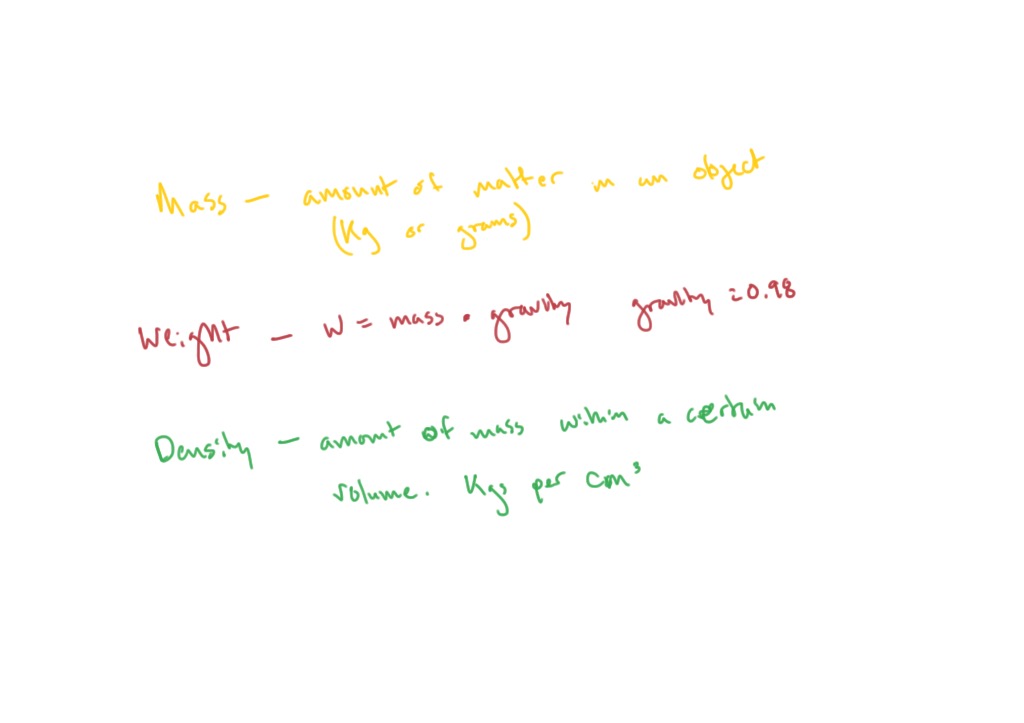 Mass – amount of matter in an object
(Kg or grams)
Weight – W = mass • gravity gravity = 0.98
Density – amount of mass within a certain
volume. Kgs per cm³